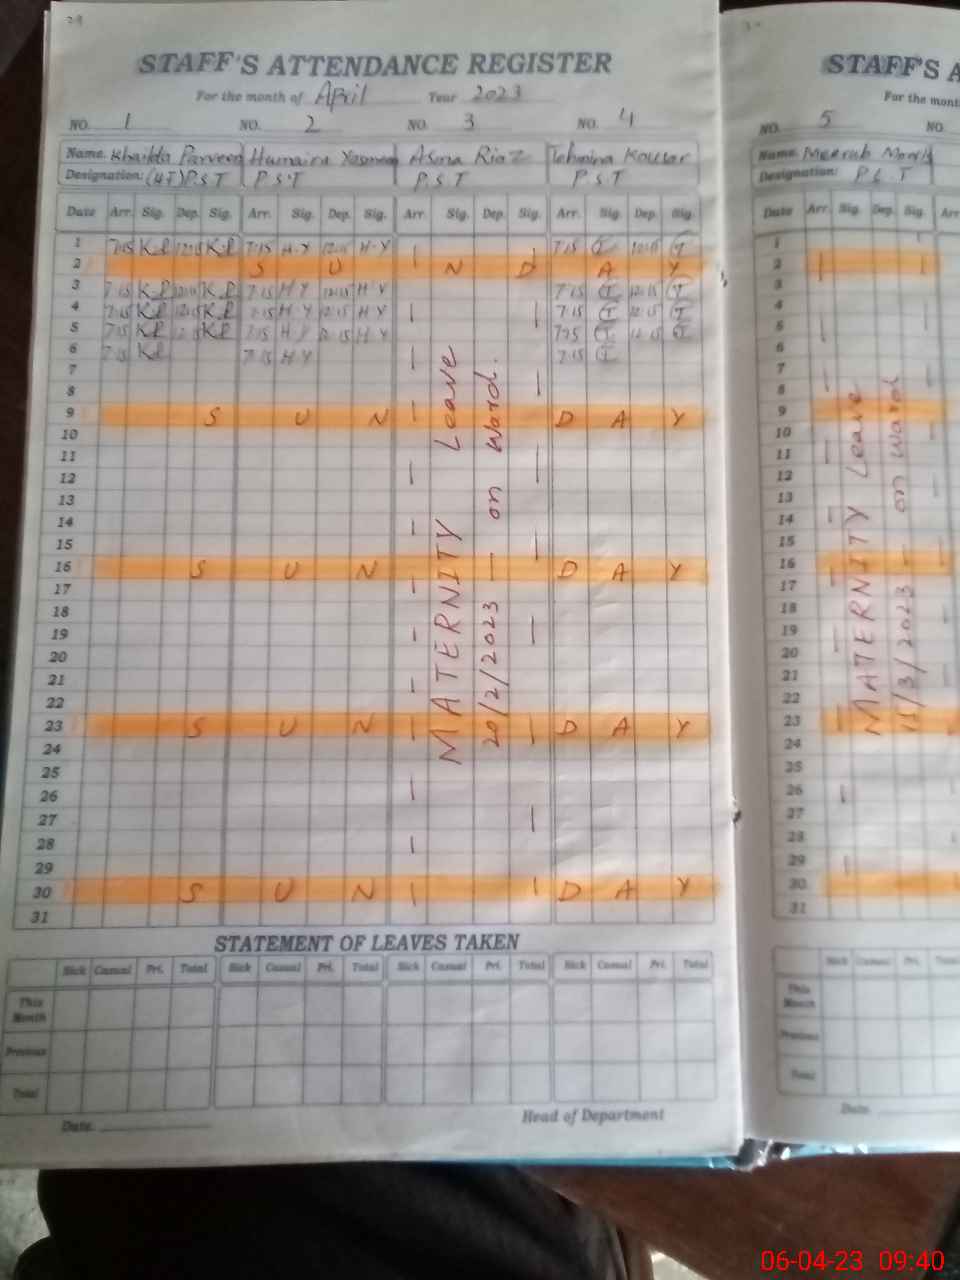 29
STAFF'S ATTENDANCE REGISTER
For the month of April Year 2023
NO. 1 NO. 2 NO. 3 NO. 4
Name. Khalida Parveen Humaira Yasmeen Asma Riaz Tehmina Kousar
Designation: (HT) P.S.T P.S.T P.S.T P.S.T
Date Arr. Sig. Dep. Sig. Arr. Sig. Dep. Sig. Arr. Sig. Dep. Sig. Arr. Sig. Dep. Sig.
1 7:15 K.P 12:15 K.P 7:15 H.Y 12:15 H.Y 7:15 T 12:15 T
2 S U N D A Y
3 7:15 K.P 12:15 K.P 7:15 H.Y 12:15 H.Y 7:15 T 12:15 T
4 7:15 K.P 12:15 K.P 7:15 H.Y 12:15 H.Y 7:15 T 12:15 T
5 7:15 K.P 12:15 K.P 7:15 H.Y 12:15 H.Y 7:15 T 12:15 T
6 7:15 K.P 7:15 H.Y 7:15 T
7
8
9 S U N D A Y
10
11
12
13
14
15
16 S U N D A Y
17
18
19
20
21
22
23 S U N D A Y
24
25
26
27
28
29
30 S U N D A Y
31
MATERNITY Leave
20/2/2023 — on ward.
STATEMENT OF LEAVES TAKEN
Sick Casual Pri. Total Sick Casual Pri. Total Sick Casual Pri. Total Sick Casual Pri. Total
This Month
Previous
Total
Date. Head of Department
STAFF'S A
For the mont
NO. 5 NO.
Name.
Designation: P.S.T
Date Arr. Sig. Dep. Sig. Arr
1
2
3
4
5
6
7
8
9
10
11
12
13
14
15
16
17
18
19
20
21
22
23
24
25
26
27
28
29
30
31
MATERNITY Leave
11/3/2023 — on ward
Sick Casual Pri.
This Month
Previous
Total
Date.
06-04-23 09:40